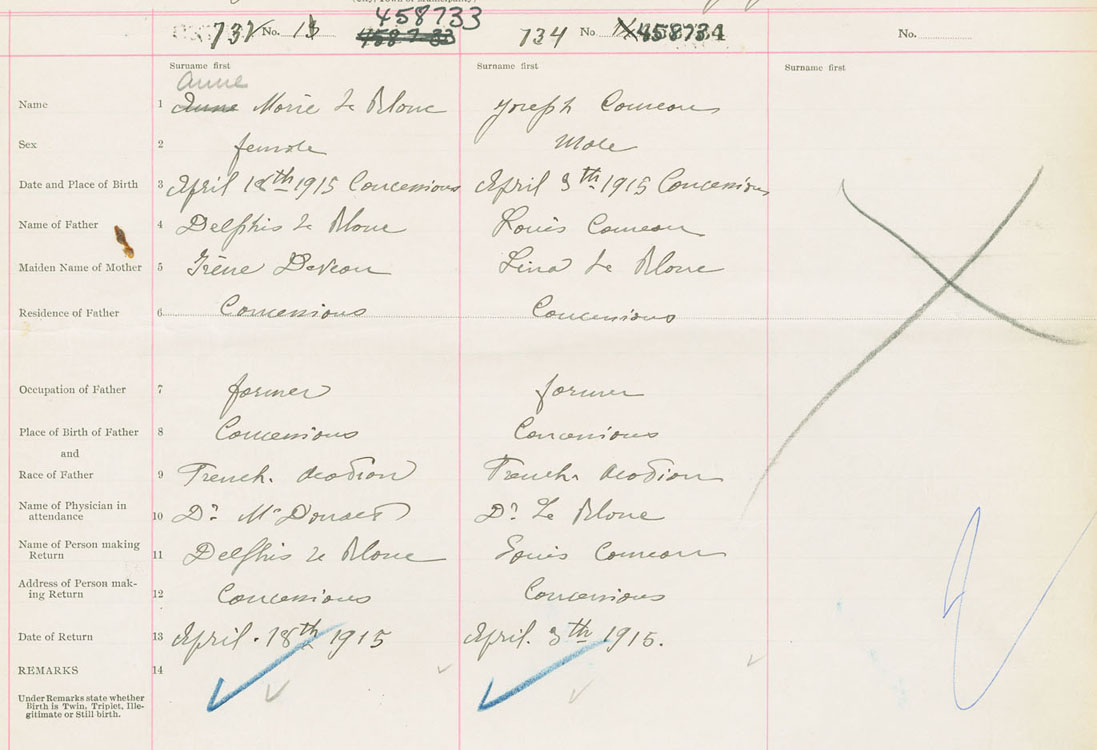 458733
732 No. 13 458733 734 No 458734 No.
Surname first Surname first Surname first
Anne
Name 1 Anne Marie Le Blanc Joseph Comeau
Sex 2 female Male
Date and Place of Birth 3 April 18th 1915 Concessions April 3th 1915 Concessions
Name of Father 4 Delphis Le Blanc Louis Comeau
Maiden Name of Mother 5 Irène Deveau Lina Le Blanc
Residence of Father 6 Concessions Concessions
Occupation of Father 7 farmer farmer
Place of Birth of Father 8 Concessions Concessions
and
Race of Father 9 French. Acadian French. Acadian
Name of Physician in
attendance 10 Dr McDonald Dr Le Blanc
Name of Person making
Return 11 Delphis Le Blanc Louis Comeau
Address of Person mak-
ing Return 12 Concessions Concessions
Date of Return 13 April. 18th 1915 April. 3th 1915.
REMARKS 14
Under Remarks state whether
Birth is Twin, Triplet, Ille-
gitimate or Still birth.